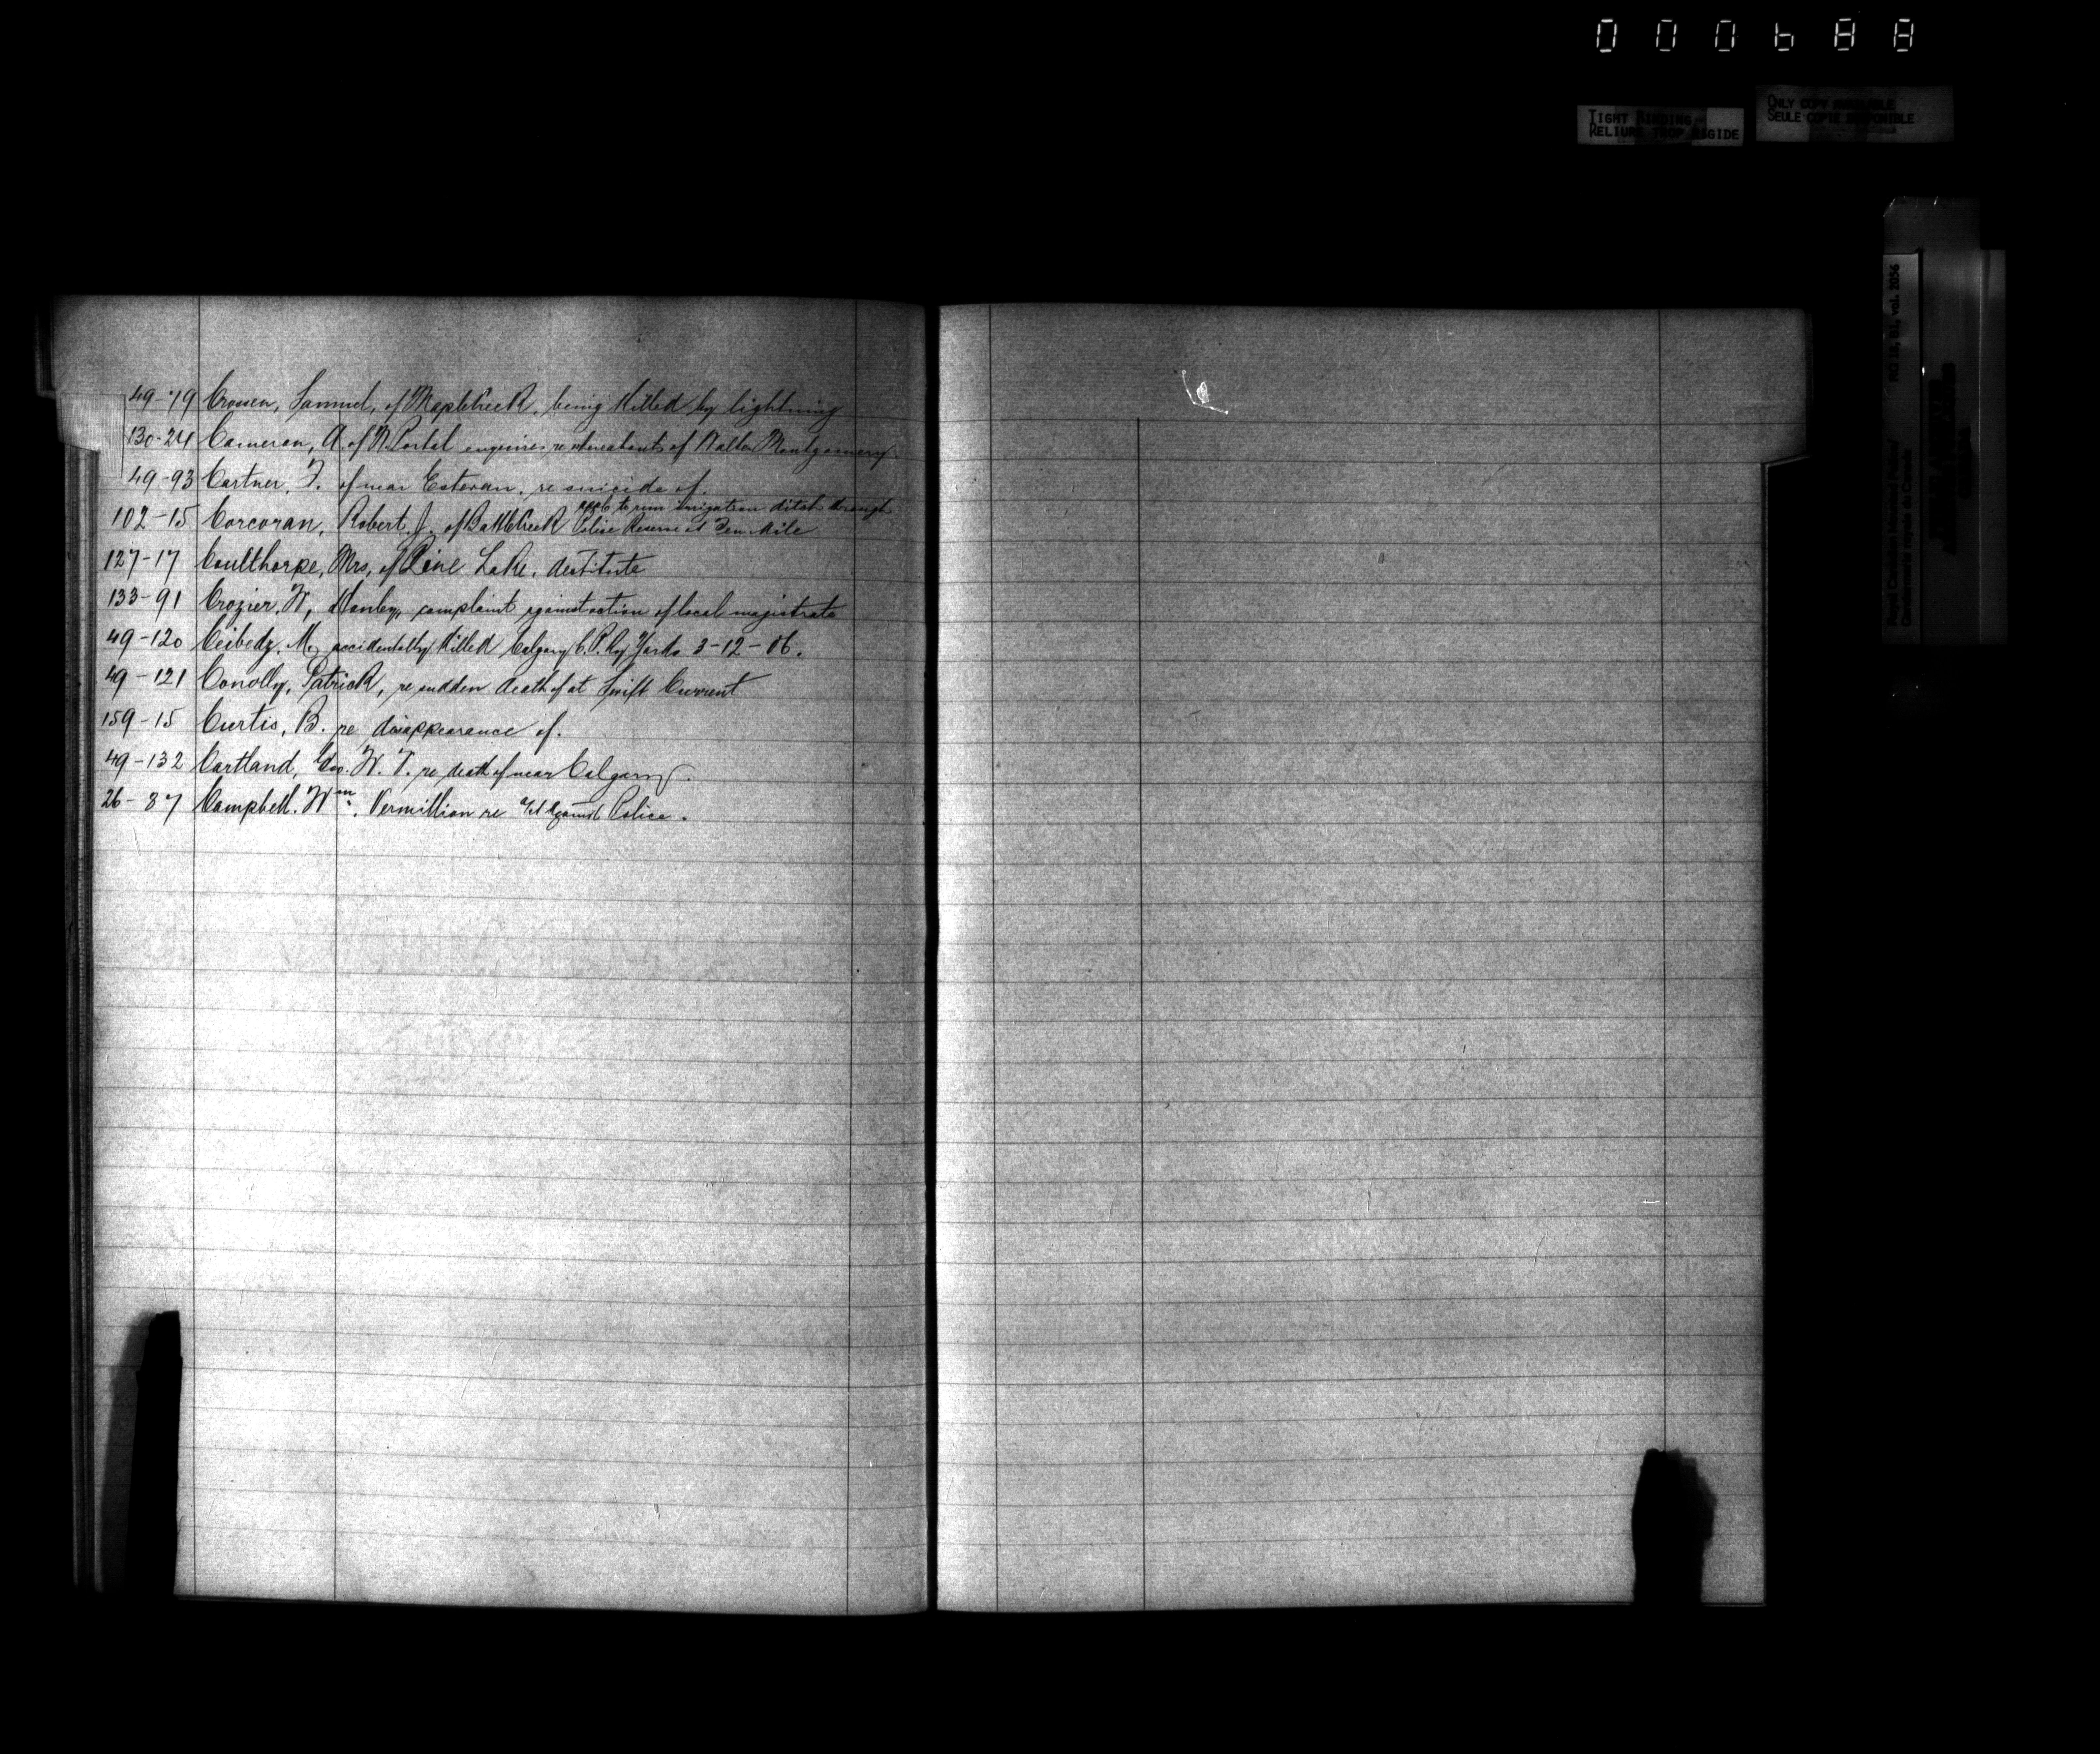 000688
TIGHT BINDING
RELIURE TROP RIGIDE
ONLY COPY AVAILABLE
SEULE COPIE DISPONIBLE
RG 18, B1, vol. 2056
Royal Canadian Mounted Police/
Gendarmerie royale du Canada
49-79 Crossen, Samuel, of MapleCreek, being killed by lightning
130-24 Cameron, A. of N. Portal enquires re whereabouts of Walter Montgomery.
49-93 Cartner, F. of near Estevan, re suicide of.
102-15 Corcoran, Robert J. of BattleCreek appl. to run irrigation ditch through
Police Reserve at Ten Mile
127-17 Coulthorpe, Mrs, of Pine Lake, destitute
133-91 Crozier, W, Hanley, complaint against action of local magistrate
49-120 Ceibedz, M, accidentally killed Calgary C.P.Ry Yards 3-12-06.
49-121 Conolly, Patrick, re sudden death of at Swift Current
159-15 Curtis, B. re disappearance of.
49-132 Cartland, Geo. W. T. re death of near Calgary.
26-87 Campbell. Wm. Vermillion re against Police.